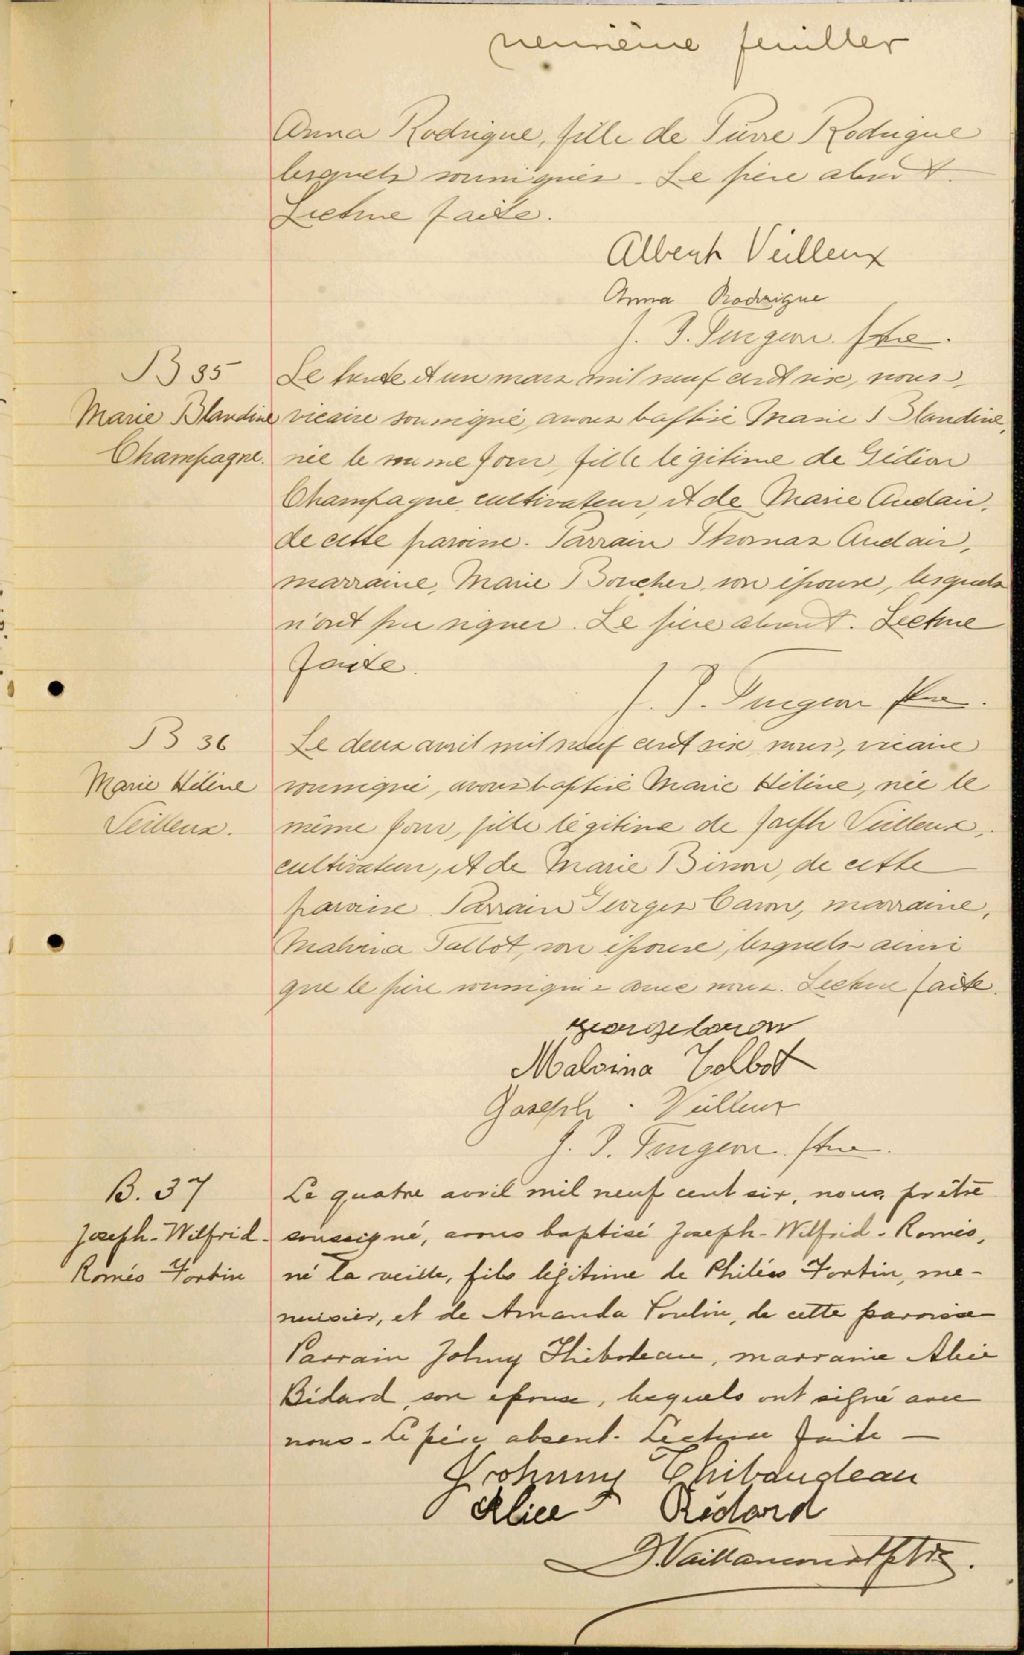 neuvième feuillet
Anna Rodrigue, fille de Pierre Rodrigue
lesquels soussignés. Le père absent.
Lecture faite.
Albert Veilleux
Anna Rodrigue
J. P. Turgeon ptre.
B 35
Marie Blandine
Champagne.
Le trente et un mars mil neuf cent six, nous,
vicaire soussigné, avons baptisé Marie Blandine,
née le même jour, fille légitime de Gédéon
Champagne, cultivateur, et de Marie Audair,
de cette paroisse. Parrain Thomas Audair,
marraine, Marie Boucher son épouse, lesquels
n'ont pu signer. Le père absent. Lecture
faite.
J. P. Turgeon ptre.
B 36
Marie Hélène
Veilleux.
Le deux avril mil neuf cent six, nous, vicaire
soussigné, avons baptisé Marie Hélène, née le
même jour, fille légitime de Joseph Veilleux,
cultivateur, et de Marie Bisson, de cette
paroisse. Parrain Georges Caron, marraine,
Malvina Talbot, son épouse, lesquels ainsi
que le père soussignés avec nous. Lecture faite.
George Caron
Malvina Tolbot
Joseph Veilleux
J. P. Turgeon ptre.
B. 37
Joseph-Wilfrid-
Roméo Fortin
Le quatre avril mil neuf cent six, nous, prêtre
soussigné, avons baptisé Joseph-Wilfrid-Roméo,
né la veille, fils légitime de Philéas Fortin, me-
nuisier, et de Amanda Poulin, de cette paroisse
Parrain Johny Thibodeau, marraine Alice
Bédard, son épouse, lesquels ont signé avec
nous. Le père absent. Lecture faite —
Johnny Thibaudeau
Alice Bédard
J. Vaillancourt ptre.